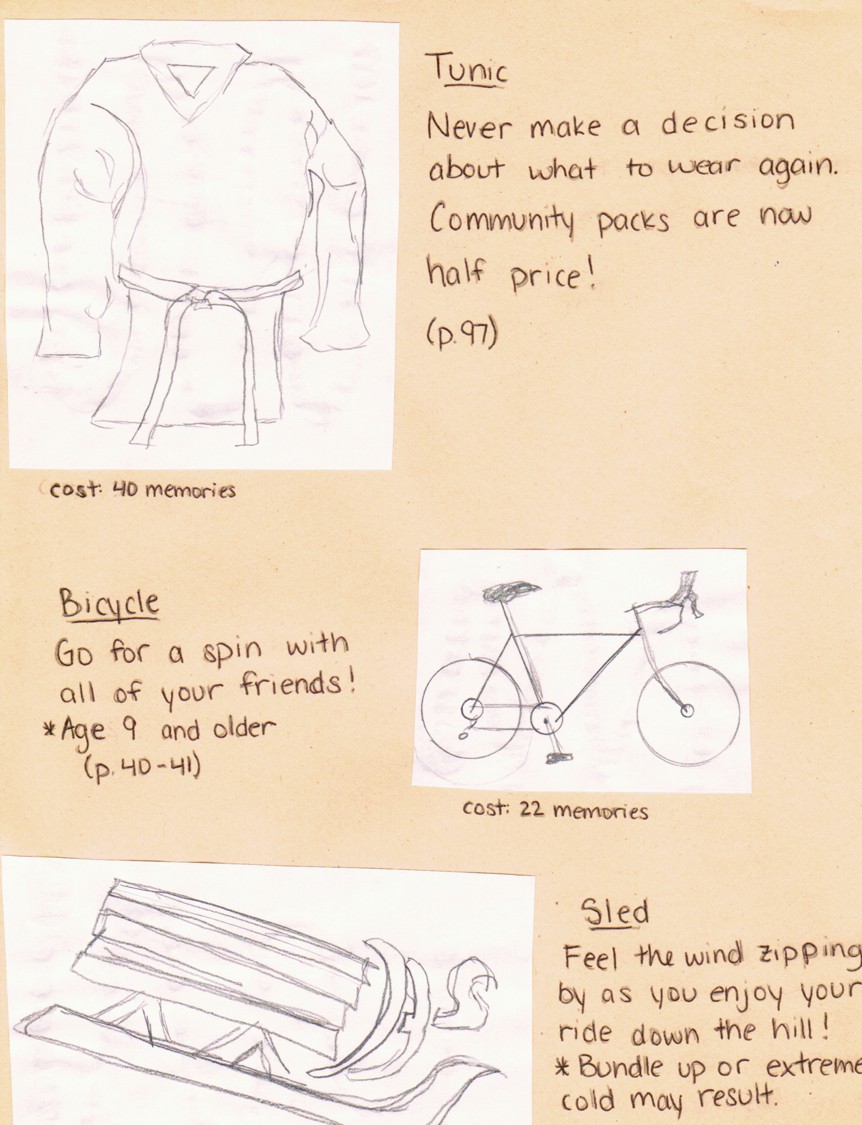 Tunic
Never make a decision
about what to wear again.
Community packs are now
half price!
(p.97)
cost: 40 memories
Bicycle
Go for a spin with
all of your friends!
*Age 9 and older
(p.40-41)
cost: 22 memories
Sled
Feel the wind zipping
by as you enjoy your
ride down the hill!
*Bundle up or extreme
cold may result.